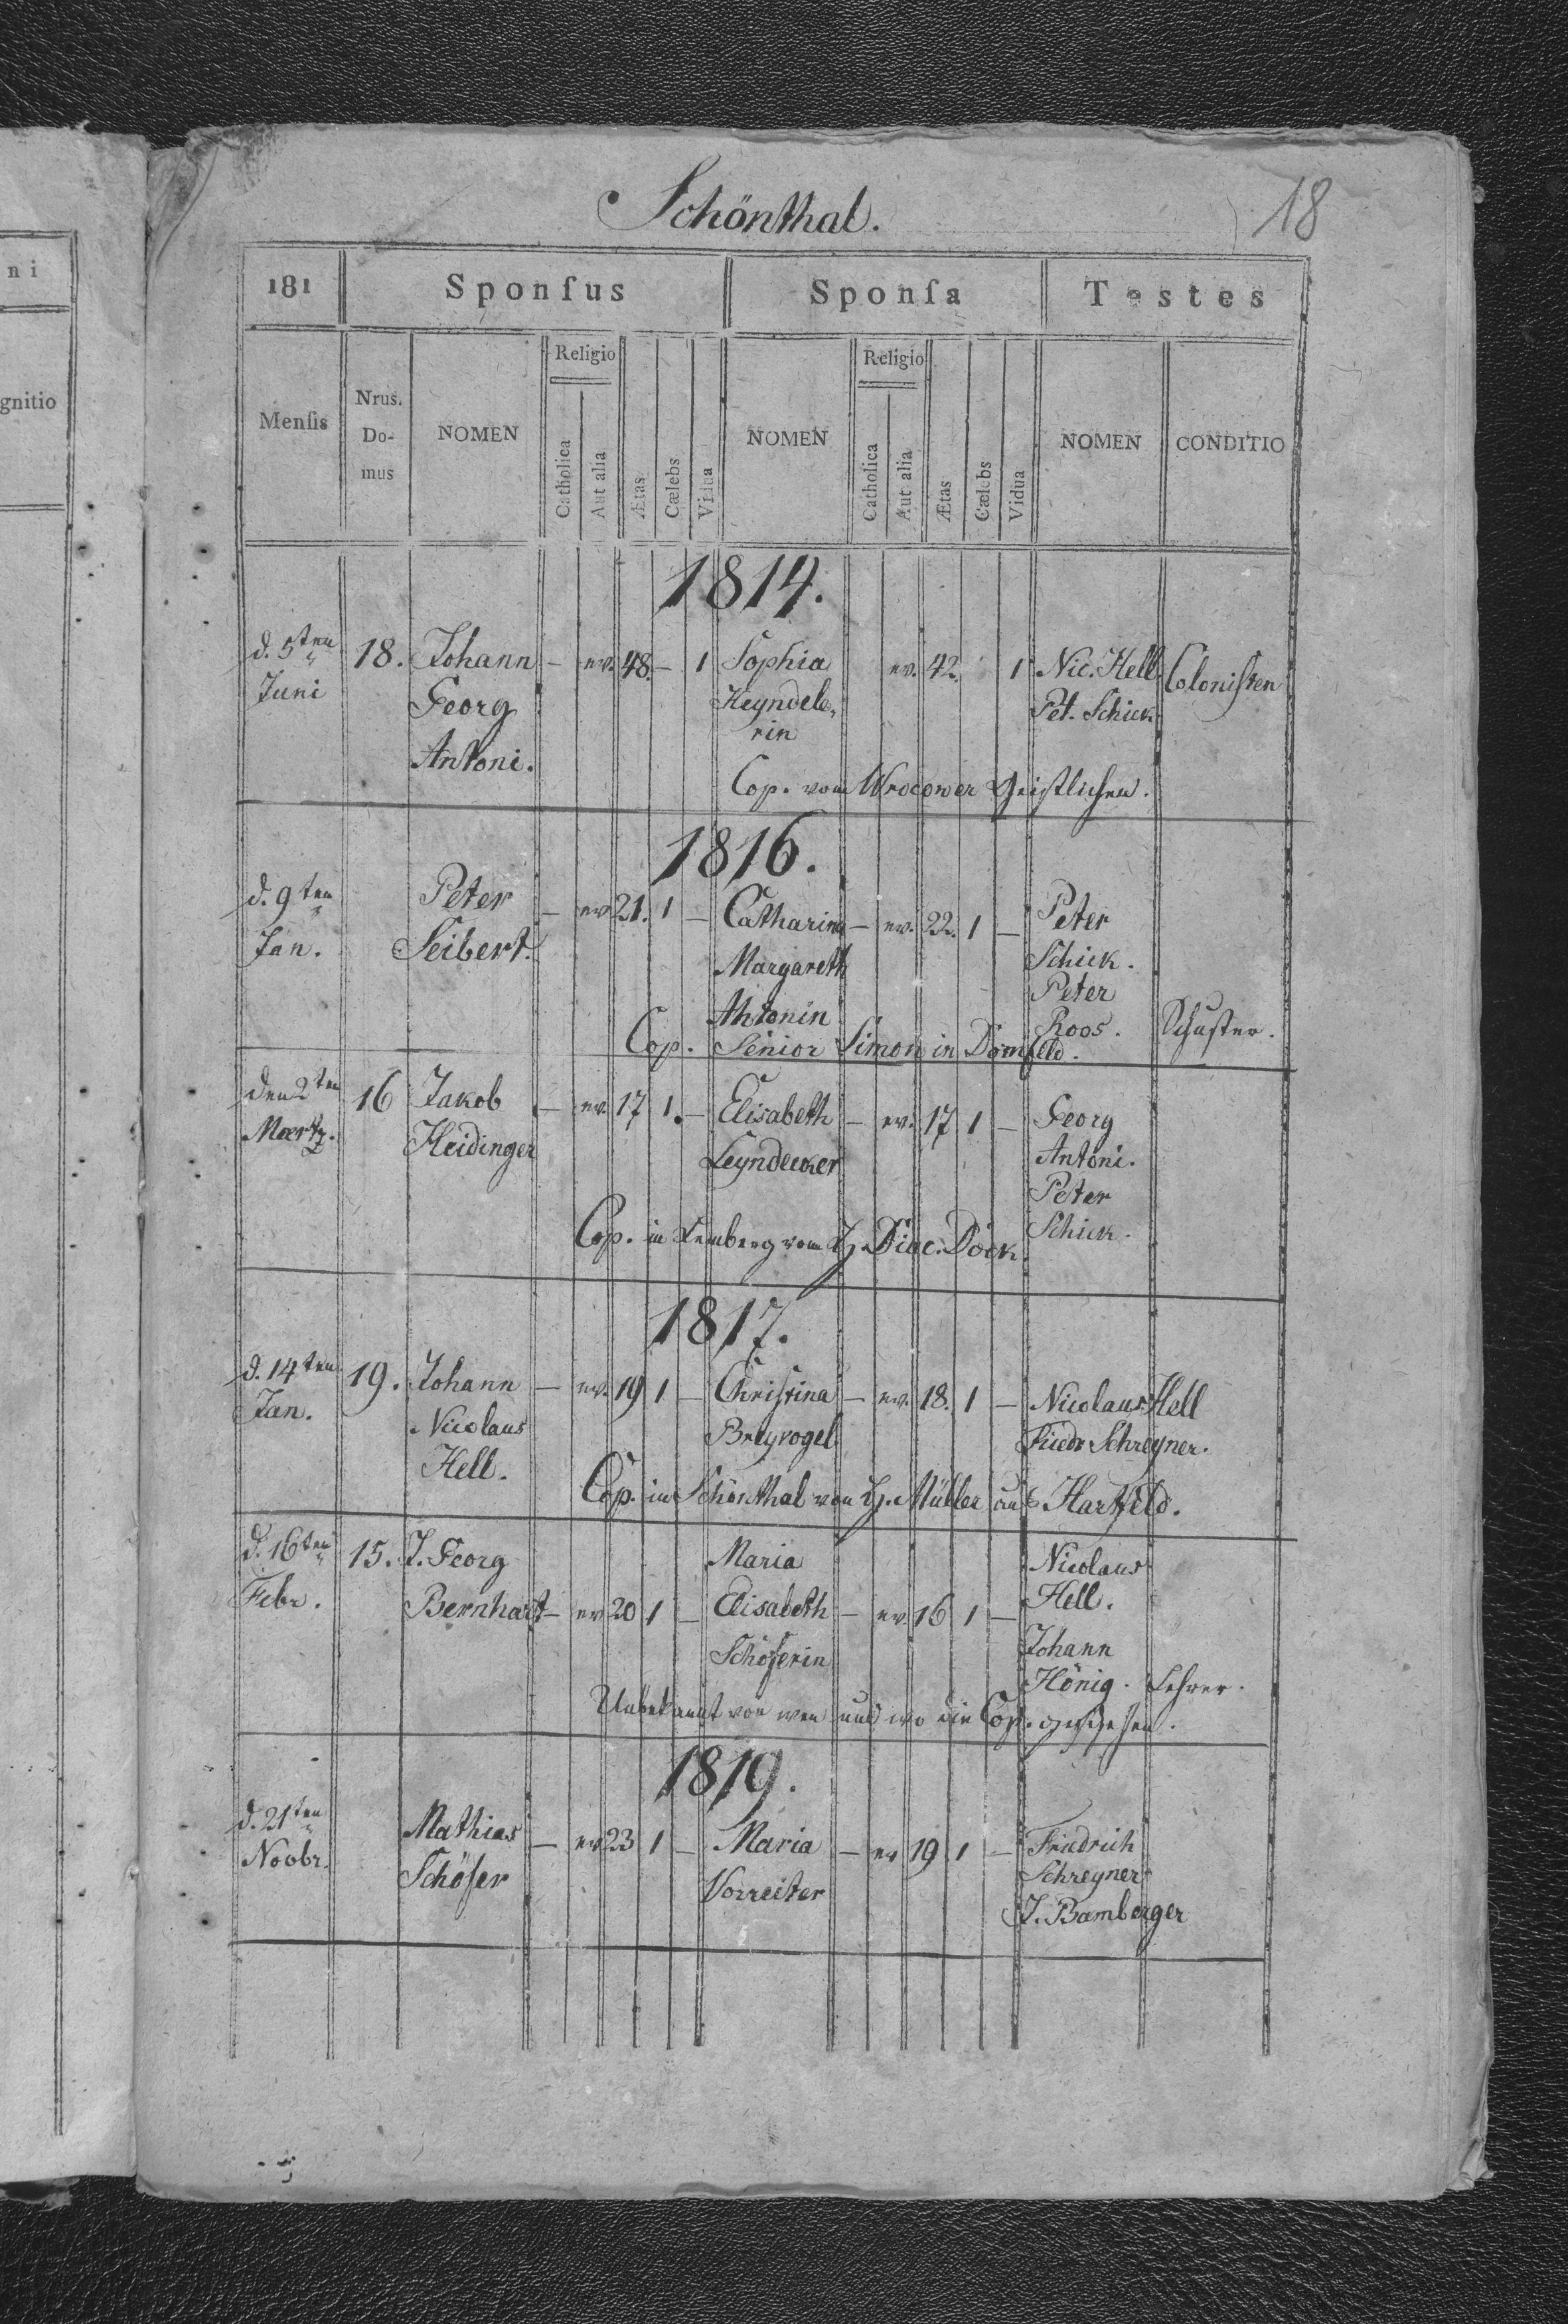 ni
gnitio
Schönthal.
18
181 Sponſus Sponſa Testes
Menſis Nrus. Do- mus NOMEN Religio Catholica Aut alia Ætas Cælebs Vidua NOMEN Religio Catholica Aut alia Ætas Cælebs Vidua NOMEN CONDITIO
1814.
d. 5ten 18. Johann — ev. 48. — 1 Sophia ev. 42. 1 Nic. Hell Colonisten
Juni Georg Heyndele, Pet. Schick
Antoni. rin
Cop. vom Wrocower Geistlichen.
1816.
d. 9ten Peter — ev 21. 1 — Catharina — ev. 22. 1 — Peter
Jan. Seibert. Margareth Schick.
Antonin Peter
Roos. Schuster.
Cop. Senior Simon in Dornfeld.
den 2ten 16 Jakob — ev. 17 1. — Elisabeth — ev. 17 1 — Georg
Maertz. Heidinger Leyndecker Antoni.
Peter
Schick.
Cop. in Lemberg vom H. Diac. Döck
1817.
d. 14ten 19. Johann — ev. 19 1 — Christina — ev. 18. 1 — Nicolaus Hell
Jan. Nicolaus Breyvogel Friedr Schreyner.
Hell.
Cop. in Schönthal von H. Müller aus Hartfeld.
d. 16ten 15. J. Georg Maria Nicolaus
Febr. Bernhart — ev 20 1 — Elisabeth — ev. 16 1 — Hell.
Schöferin Johann
Hönig. Lehrer.
Unbekannt von wem und wo die Cop. geschehen.
1819.
d. 21ten Mathias — ev 23 1 — Maria — ev 19 1 — Friedrich
Novbr. Schöfer Vorreiter Schreyner
J. Bamberger